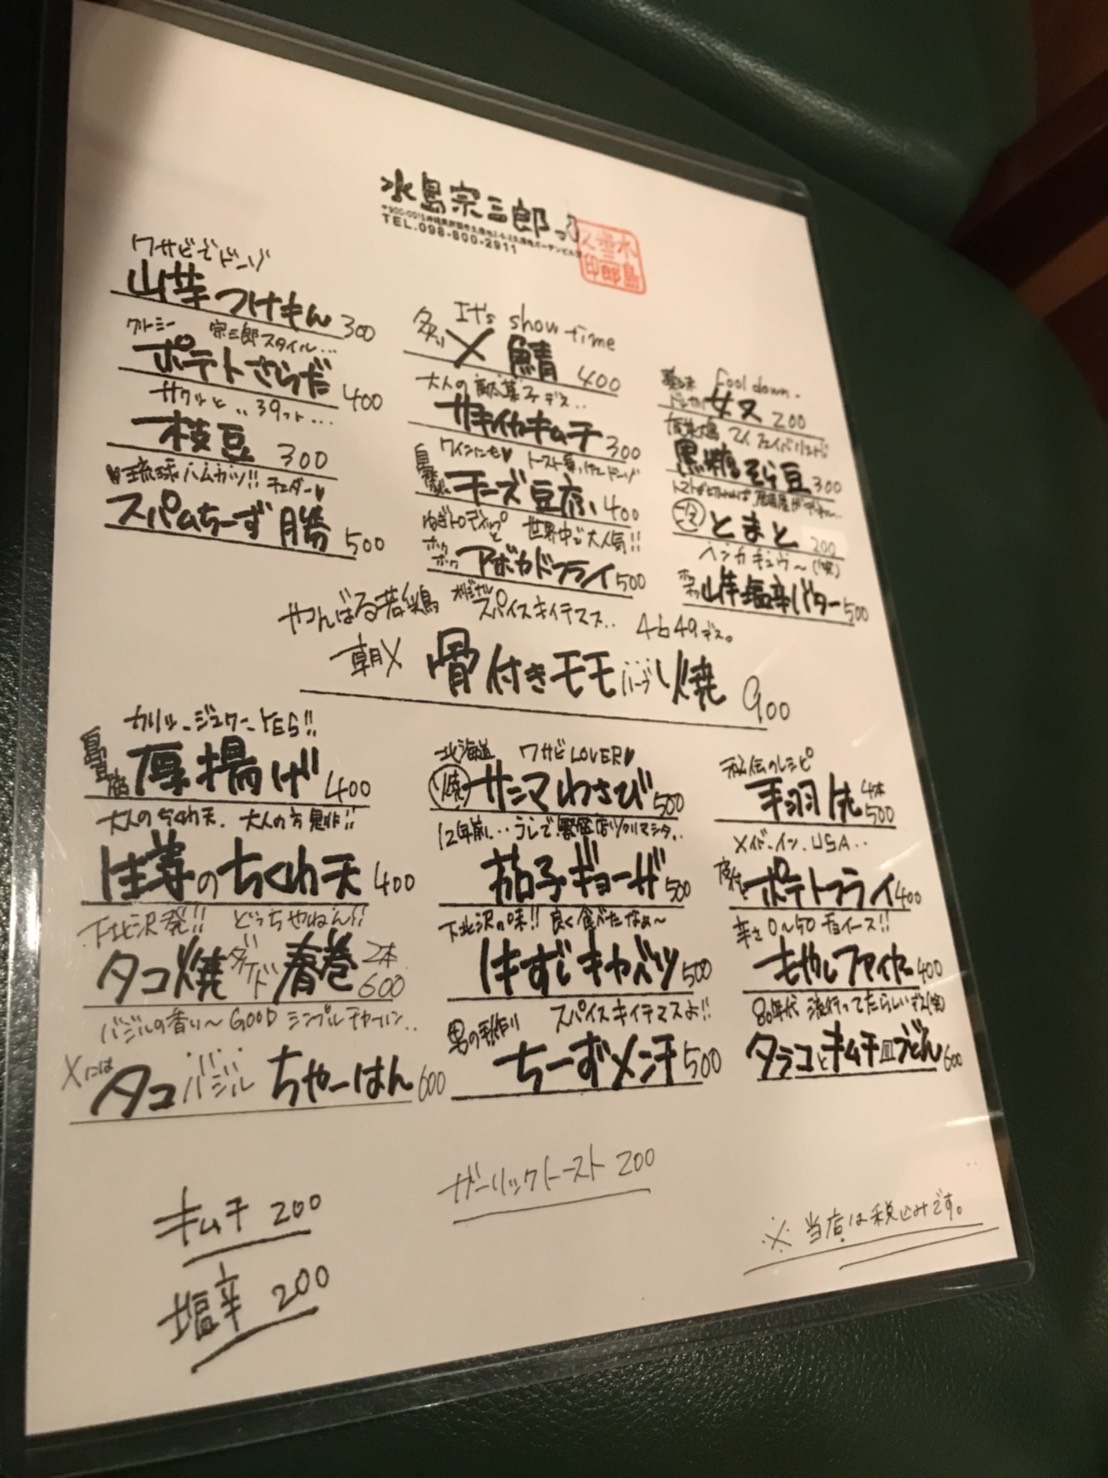 水島宗三郎
TEL.098-800-2911
水島
郎
印
ワサビでドーゾ
山芋つけもん 300
クリーミー 宗三郎スタイル...
ポテトさらだ 400
サクッと、、39フト...
枝豆 300
琉球ハムカツ!! チェダー♥
スパムちーず勝 500
It's show time
炙り〆鯖 400
大人の駄菓子デス..
サキイカキムチ 300
ワインにも♥ トースト
自家製 チーズ豆腐 400
ねぎトロディップと 世界中で大人気!!
ホクホク アボカドフライ 500
Cool down.
200
黒糖そら豆 300
とまと 200
バター 500
やんばる若鶏 オリジナル スパイスキイテマス.. 4649デス。
朝〆 骨付きモモハーブ焼 900
カリッ、ジュワ〜YES!!
自家製 厚揚げ 400
大人のちくわ天、大人の方是非!!
生姜のちくわ天 400
下北沢発!! どっちやねん!!
タコ焼ダケド春巻 2本 600
バジルの香り〜GOOD シンプルチャーハン..
〆には タコバジルちゃーはん 600
北海道 ワサビLOVER♥
サンマわさび 500
12年前、、うしで、繁盛店ツクリマシタ..
茄子ギョーザ 500
下北沢の味!! 良く食べたなぁ〜
牛すじキャベツ 500
男の手作り スパイスキイテマスよ!!
ちーずメンチ 500
秘伝のレシピ
手羽先 4本 500
メイド.イン.USA..
皮付 ポテトフライ 400
辛さ0〜50チョイース!!
もやしファイヤー 400
80年代 流行ってたらしいデス(笑)
タラコとキムチ皿うどん 600
キムチ 200
塩辛 200
ガーリックトースト 200
※当店は税込みです。